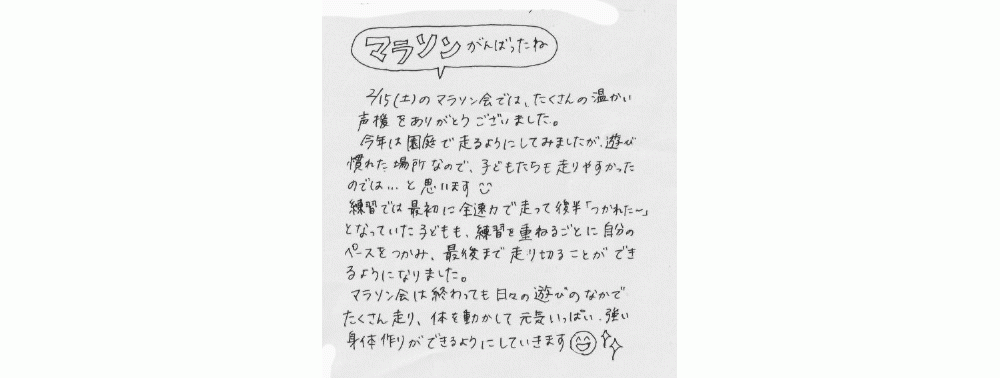 マラソンがんばったね
2/15(土)のマラソン会では、たくさんの温かい
声援をありがとうございました。
今年は園庭で走るようにしてみましたが、遊び
慣れた場所なので、子どもたちも走りやすかった
のでは…と思います
練習では最初に全速力で走って後半「つかれた〜」
となっていた子どもも、練習を重ねるごとに自分の
ペースをつかみ、最後まで走り切ることができ
るようになりました。
マラソン会は終わっても日々の遊びのなかで
たくさん走り、体を動かして元気いっぱい、強い
身体作りができるようにしていきます